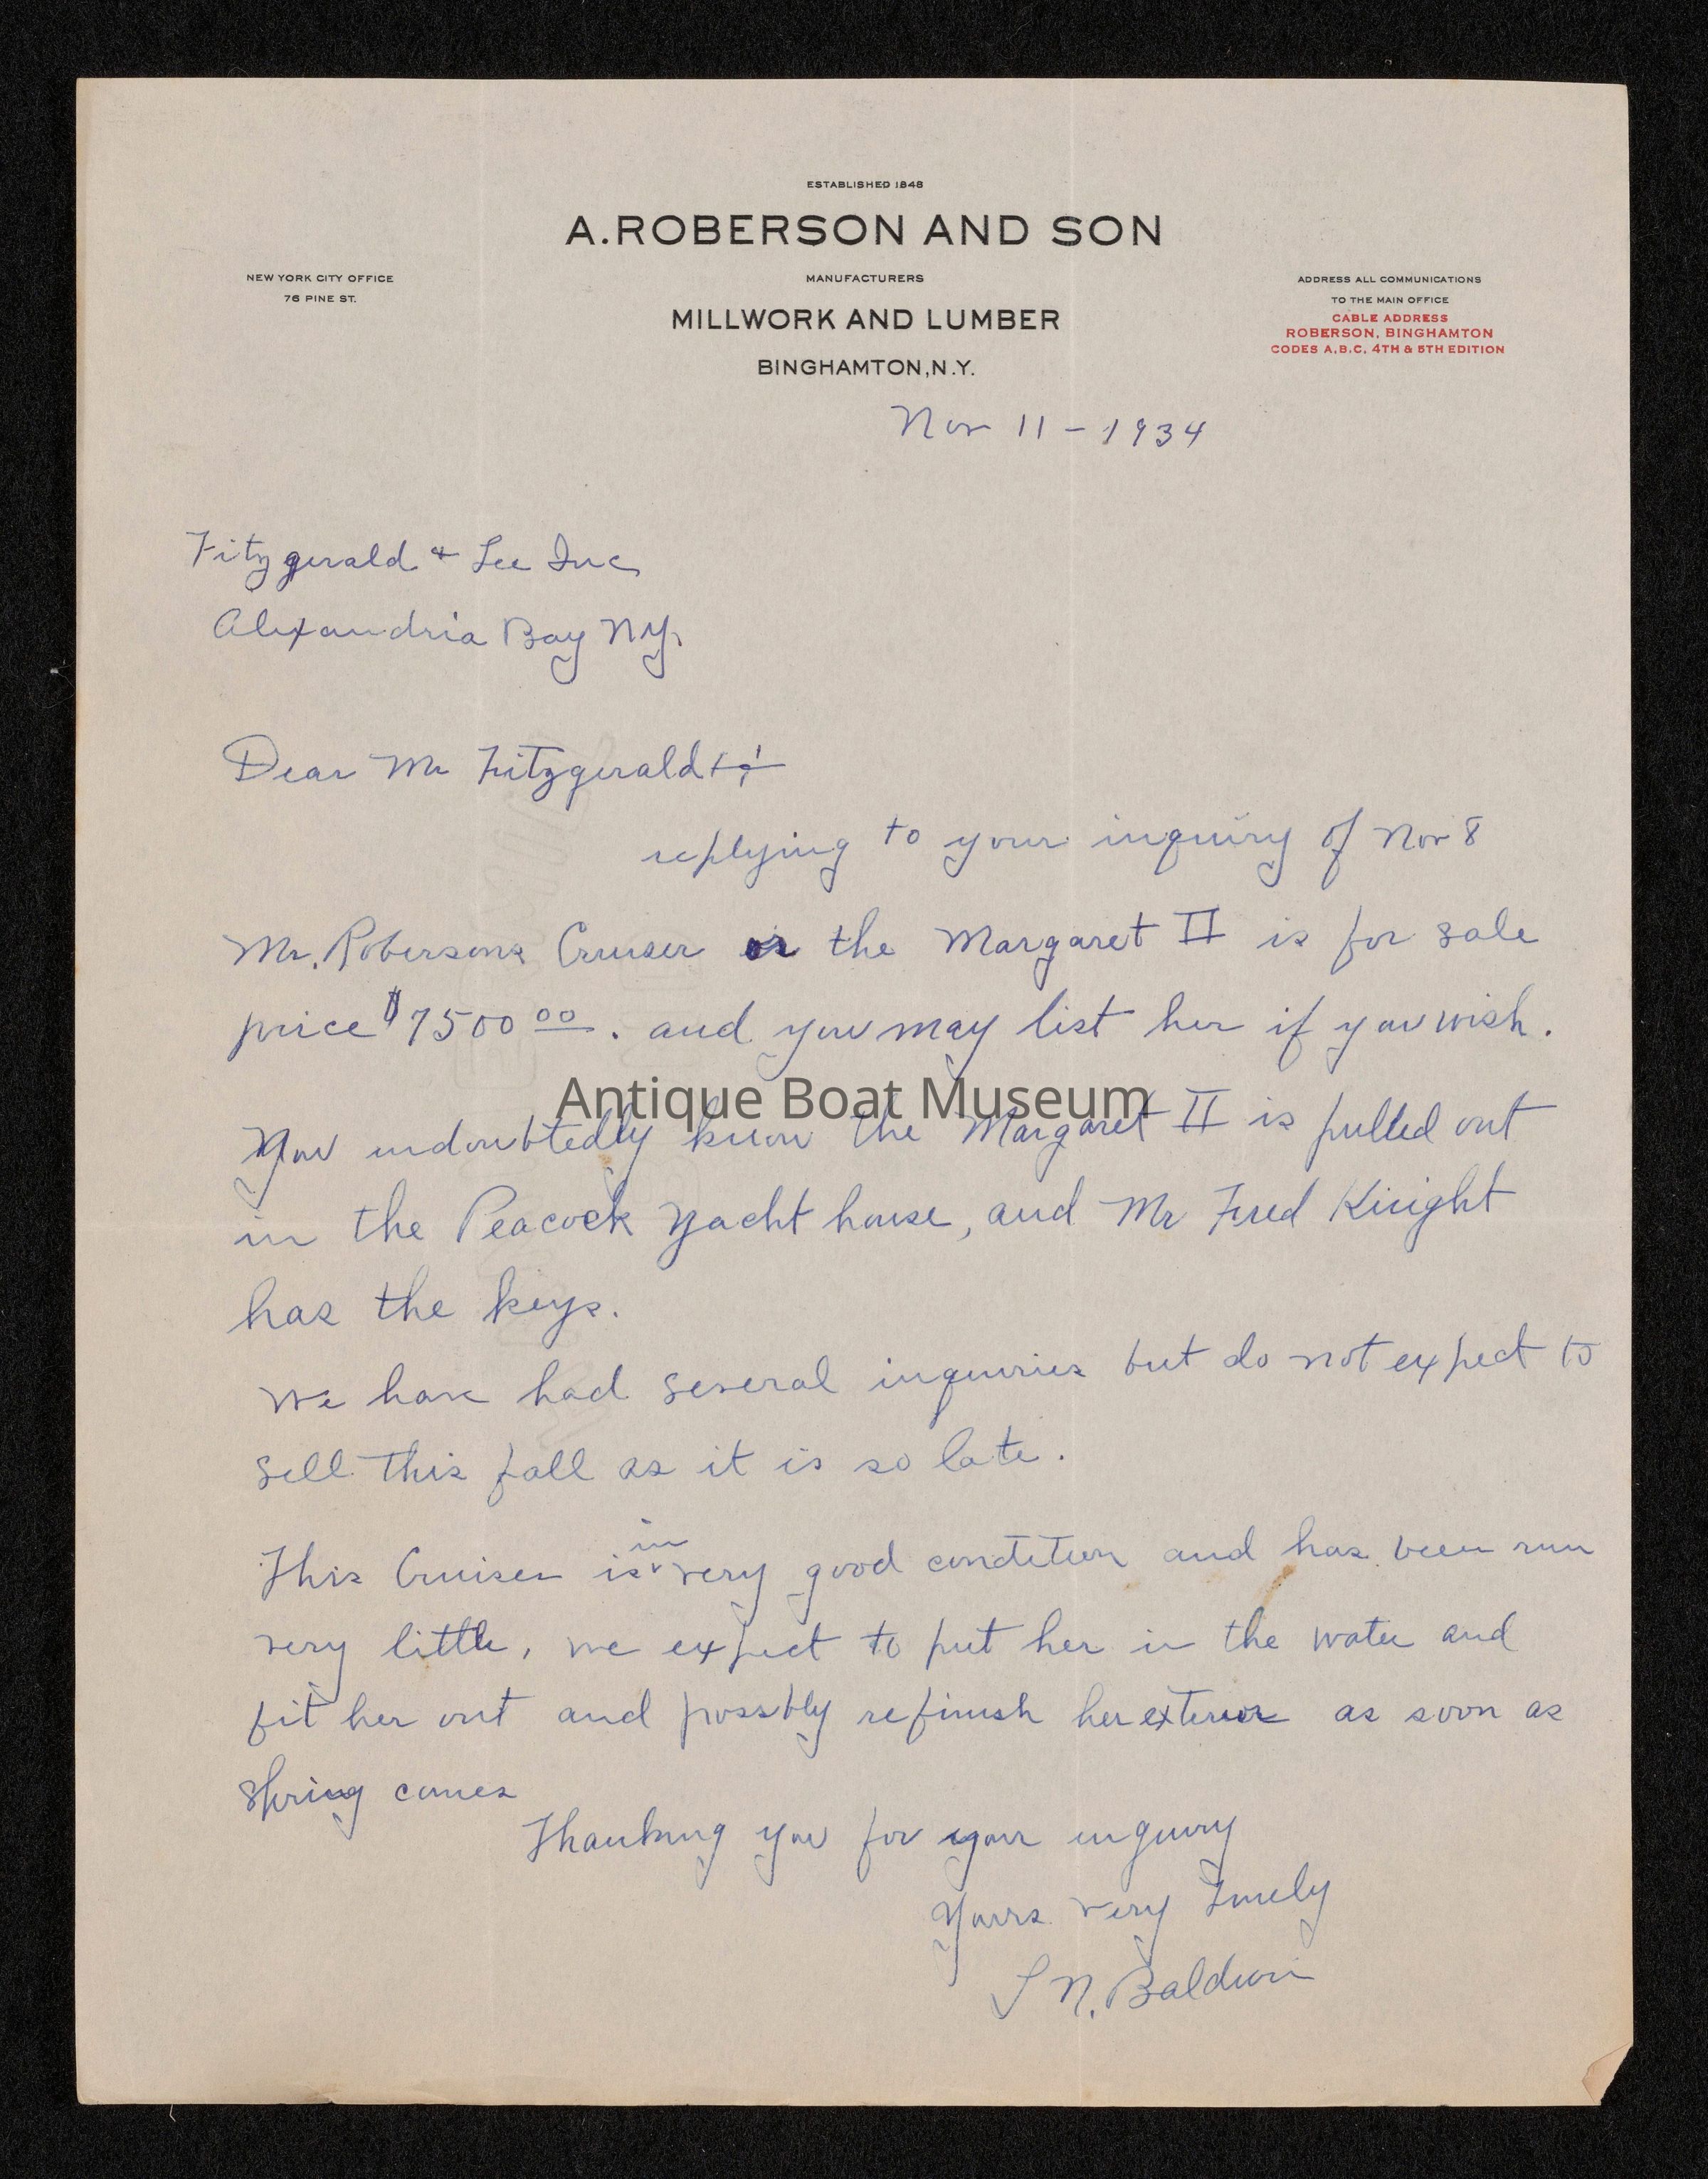 ESTABLISHED 1848
A. ROBERSON AND SON
NEW YORK CITY OFFICE
76 PINE ST.
MANUFACTURERS
MILLWORK AND LUMBER
BINGHAMTON, N.Y.
ADDRESS ALL COMMUNICATIONS
TO THE MAIN OFFICE
CABLE ADDRESS
ROBERSON, BINGHAMTON
CODES A.B.C. 4TH & 5TH EDITION
Nov 11 - 1934
Fitzgerald & Lee Inc
Alexandria Bay N.Y.
Dear Mr Fitzgerald
replying to your inquiry of Nov 8
Mr. Robersons Cruiser or the Margaret II is for sale
price $7500 00. and you may list her if you wish.
Antique Boat Museum
You undoubtedly know the Margaret II is pulled out
in the Peacock Yacht house, and Mr Fred Knight
has the keys.
We have had several inquiries but do not expect to
sell this fall as it is so late.
This Cruiser is in very good condition and has been run
very little, we expect to put her in the water and
fit her out and possbly refinish her exterior as soon as
spring comes
Thanking you for your inquiry
Yours very truely
N. Baldwin